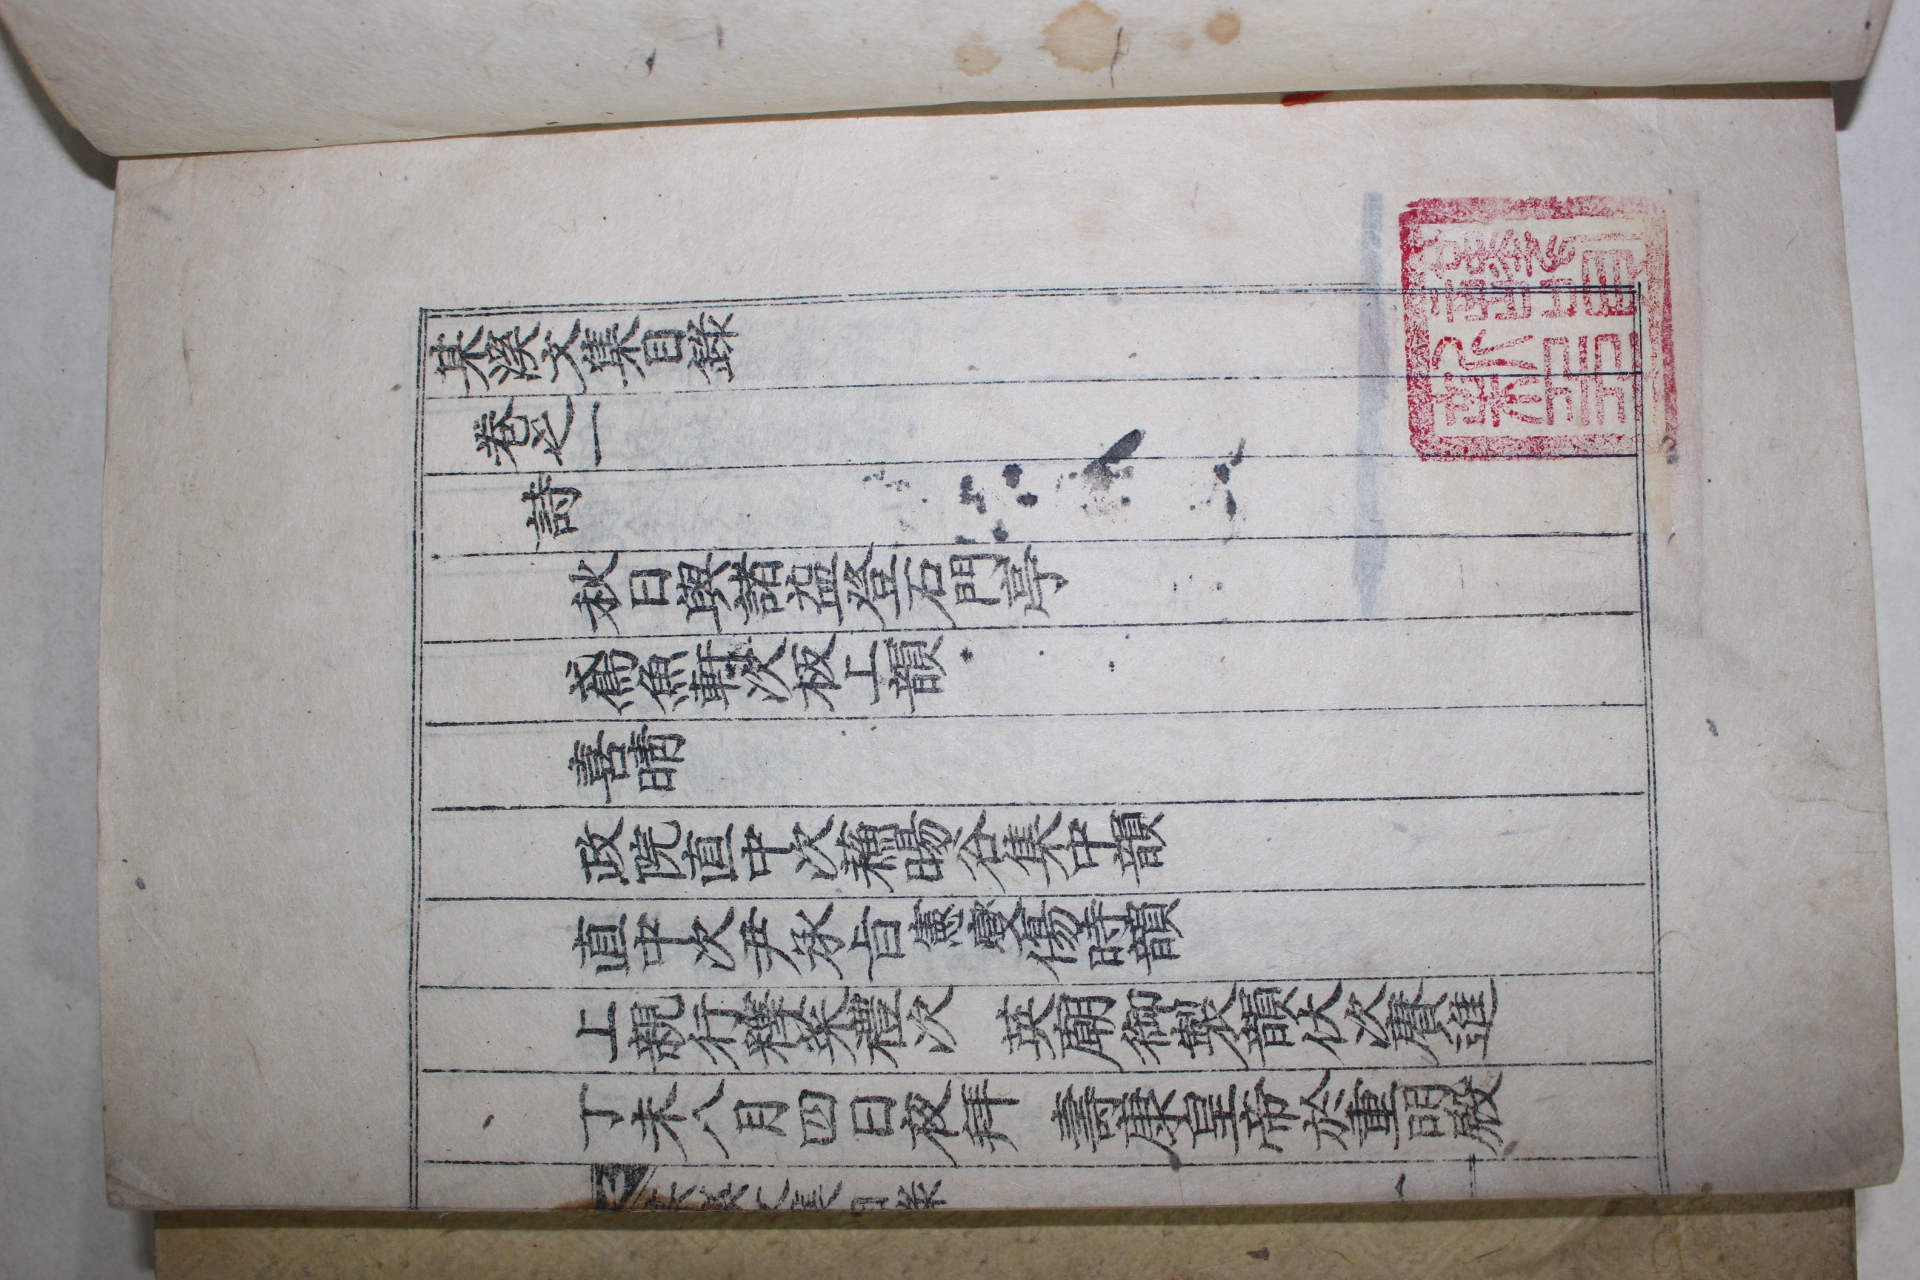 某溪文集目錄
卷之一
詩
秋日與諸益登石門亭
鳶魚軒次板上韻
喜晴
政院直中次蘓暘谷集中韻
直中次尹承旨憲燮傷時韻
上親行釋菜禮次 英廟御製韻伏次賡進
丁未八月四日夜拜 壽康皇帝於重明殿
某溪文集目錄
一